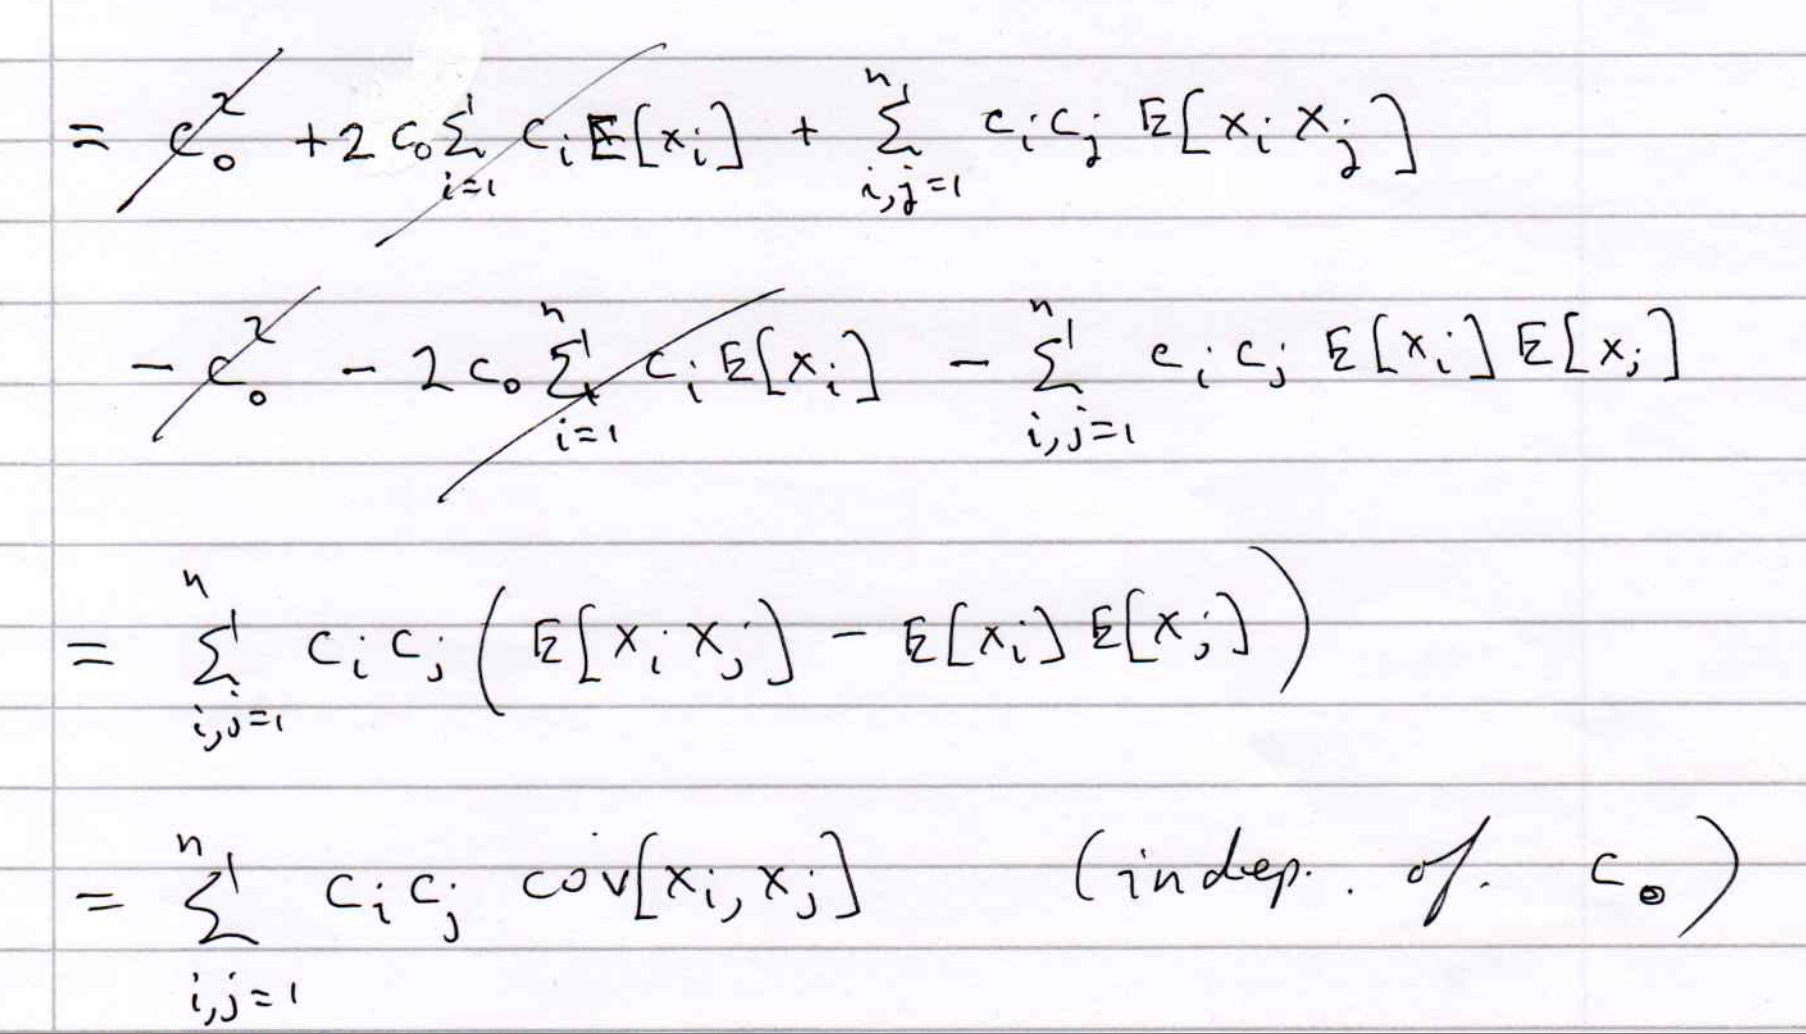 = c₀² + 2 c₀ Σ_{i=1} cᵢ E[xᵢ] + Σ_{i,j=1}^{n} cᵢ cⱼ E[xᵢ xⱼ]
− c₀² − 2 c₀ Σ_{i=1}^{n} cᵢ E[xᵢ] − Σ_{i,j=1}^{n} cᵢ cⱼ E[xᵢ] E[xⱼ]
= Σ_{i,j=1}^{n} cᵢ cⱼ ( E[xᵢ xⱼ] − E[xᵢ] E[xⱼ] )
= Σ_{i,j=1}^{n} cᵢ cⱼ cov[xᵢ, xⱼ] (indep. of. c₀)